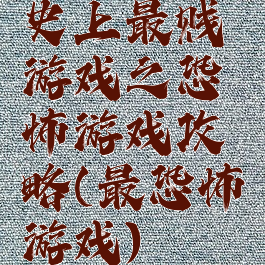 史上最贱
游戏之恐
怖游戏攻
略(最恐怖
游戏)